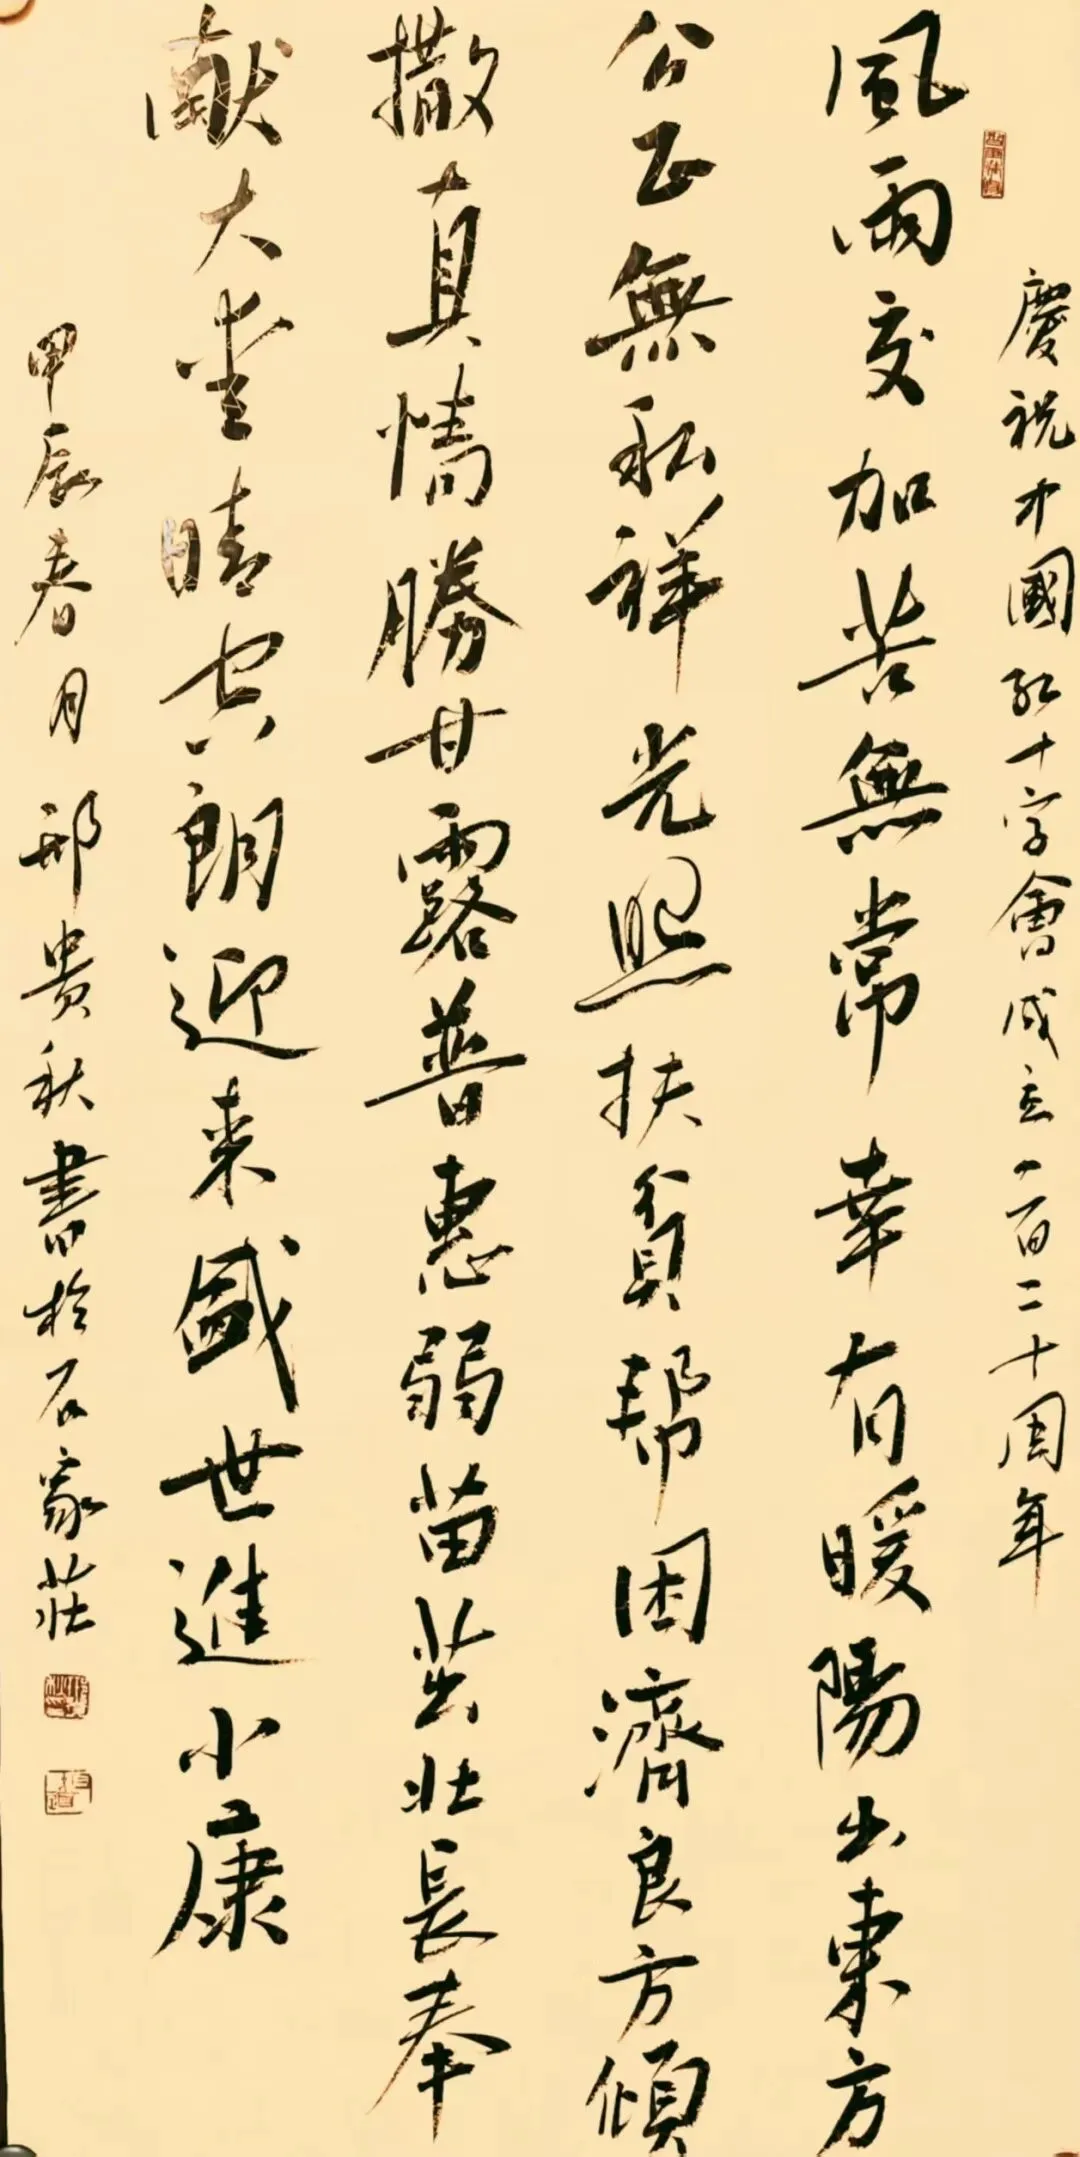 慶祝中國紅十字會成立一百二十周年
風雨交加苦無常幸有暖陽出東方
公正無私祥光照扶貧幫困濟良方傾
撒真情勝甘露普惠弱苗茁壯長奉
献大愛晴空朗迎来盛世進小康
甲辰春月邢贵秋書於石家莊